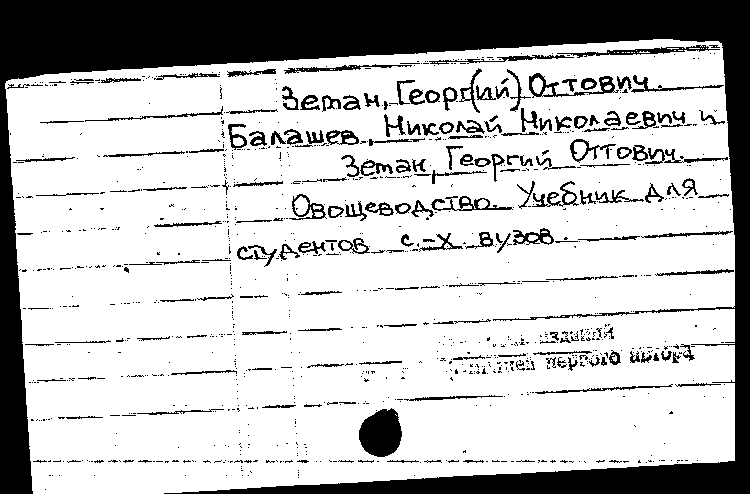 Земан, Георг(ий) Оттович.
Балашев, Николай Николаевич и
Земан, Георгий Оттович.
Овощеводство. Учебник для
студентов с.-х. вузов.
изданий
первого автора